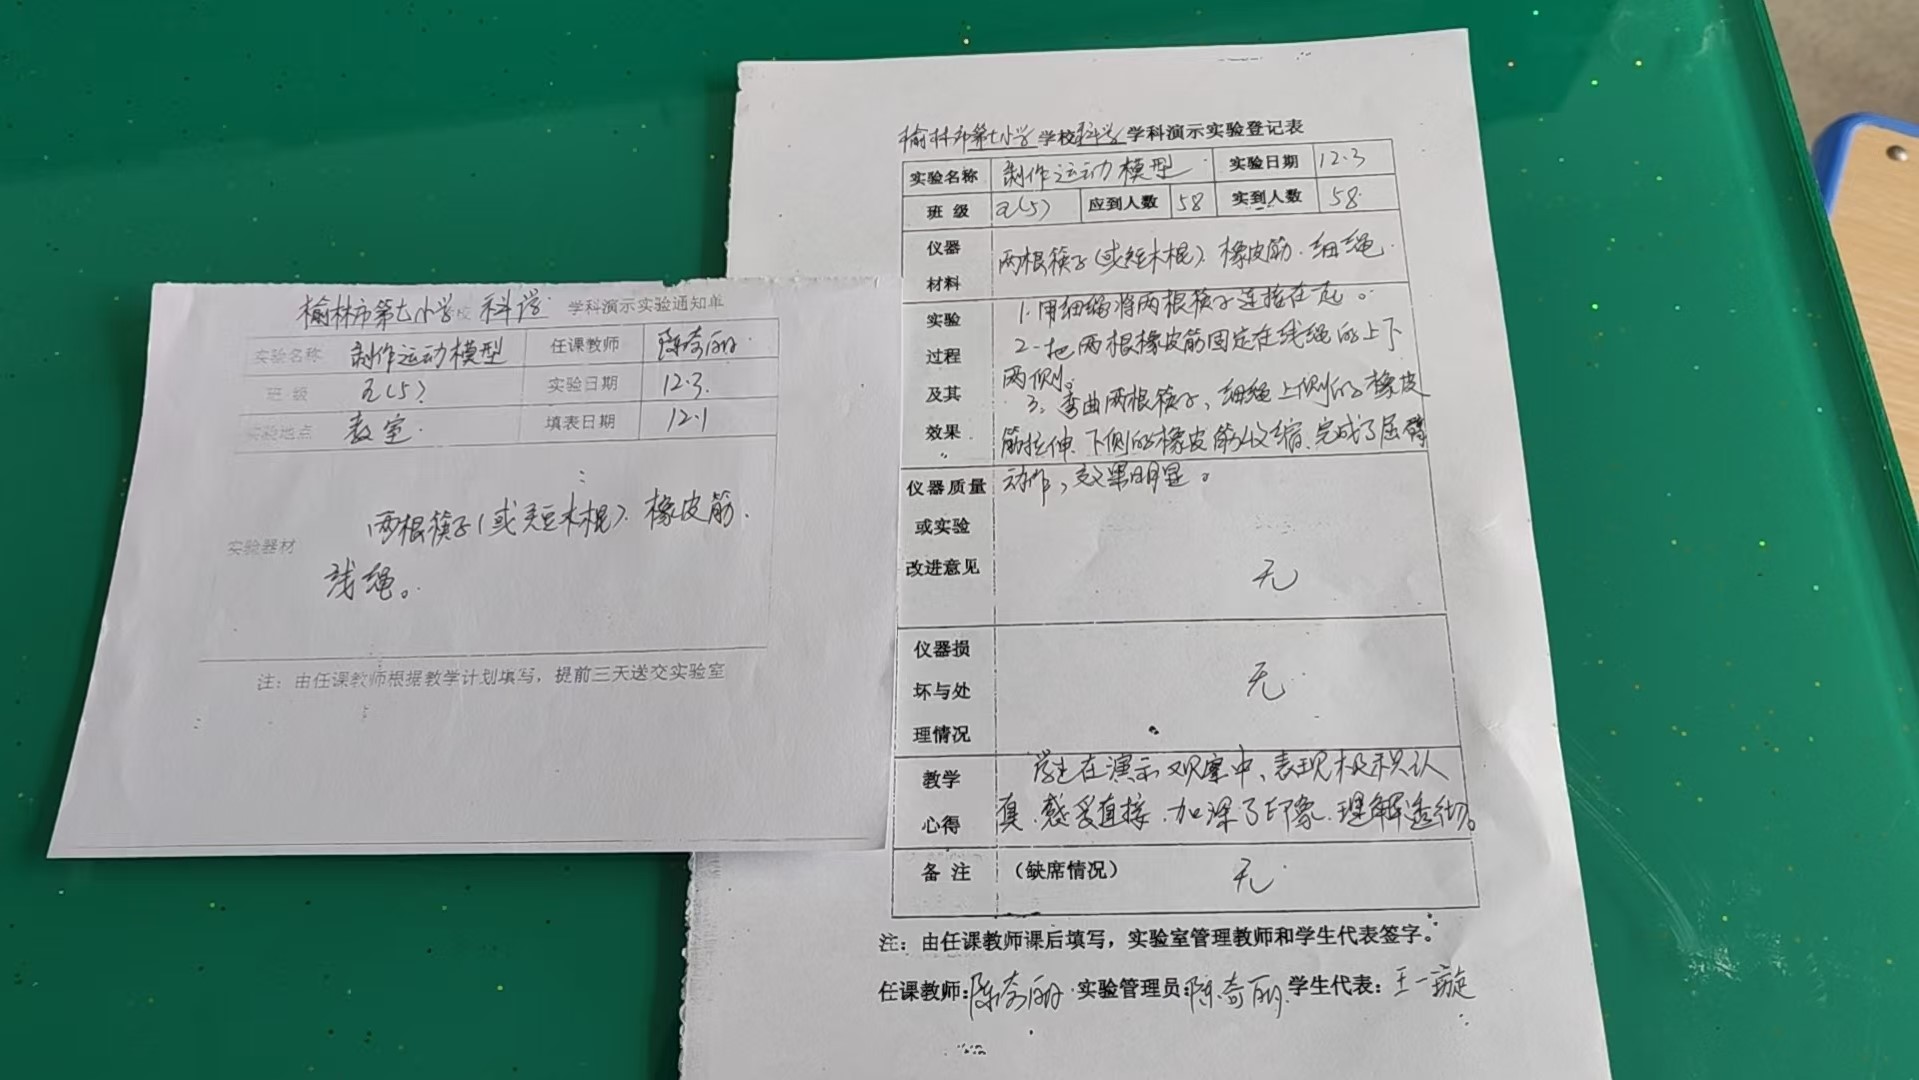 榆林市第七小学校 科学 学科演示实验通知单
实验名称 制作运动模型 任课教师 陈奇丽
班级 五(5) 实验日期 12.3
实验地点 教室 填表日期 12.1
实验器材 两根筷子(或短木棍)、橡皮筋、
线绳。
注：由任课教师根据教学计划填写，提前三天送交实验室
榆林市第七小学学校科学学科演示实验登记表
实验名称 制作运动模型 实验日期 12.3
班 级 五(5) 应到人数 58 实到人数 58
仪器材料 两根筷子(或短木棍)、橡皮筋、细绳
实验过程及其效果 1.用细绳将两根筷子连接在一起。
2.把两根橡皮筋固定在线绳的上下
两侧。
3.弯曲两根筷子，细绳上侧的橡皮
筋拉伸、下侧的橡皮筋收缩、完成了屈臂
动作，效果明显。
仪器质量或实验改进意见 无
仪器损坏与处理情况 无
教学心得 学生在演示观察中、表现积极认
真、感受直接、加深了印象、理解透彻。
备 注 （缺席情况） 无
注：由任课教师课后填写，实验室管理教师和学生代表签字。
任课教师：陈奇丽 实验管理员：陈奇丽 学生代表：王一璇